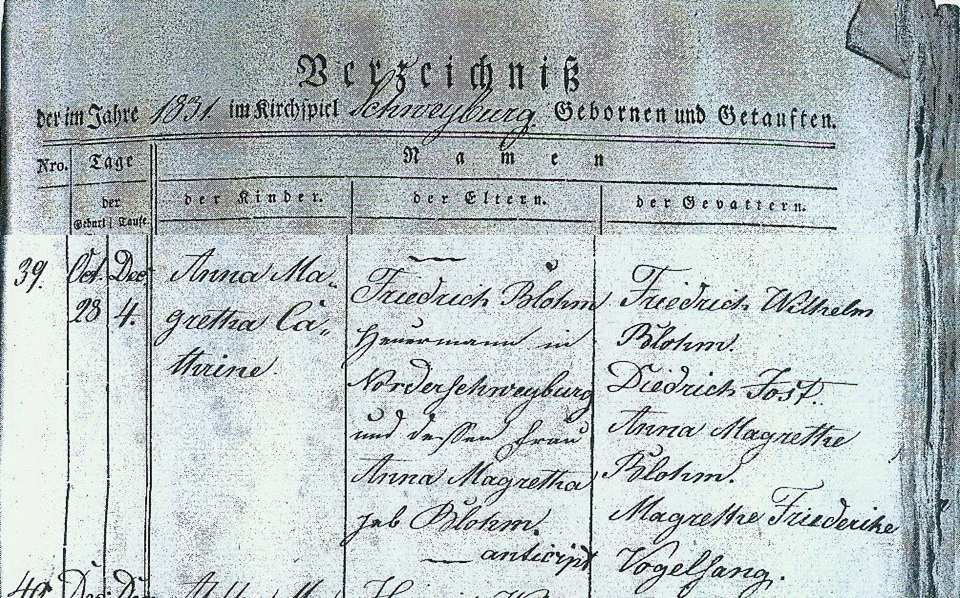 Verzeichniß
der im Jahre 1831. im Kirchspiel Schweyburg. Gebornen und Getauften.
Nro. Tage Namen
der Geburt Taufe der Kinder. der Eltern. der Gevattern.
39. Oct. 28 Dec. 4.
Anna Ma-
gretha Ca-
thrine
Friedrich Blohm
Heuermann in
Norderschweyburg
und dessen Frau
Anna Magretha
geb Blohm.
anticipt
Friedrich Wilhelm
Blohm.
Diedrich Jost.
Anna Magrethe
Blohm.
Magrethe Friederike
Vogelsang.
40. Dec. Dec.